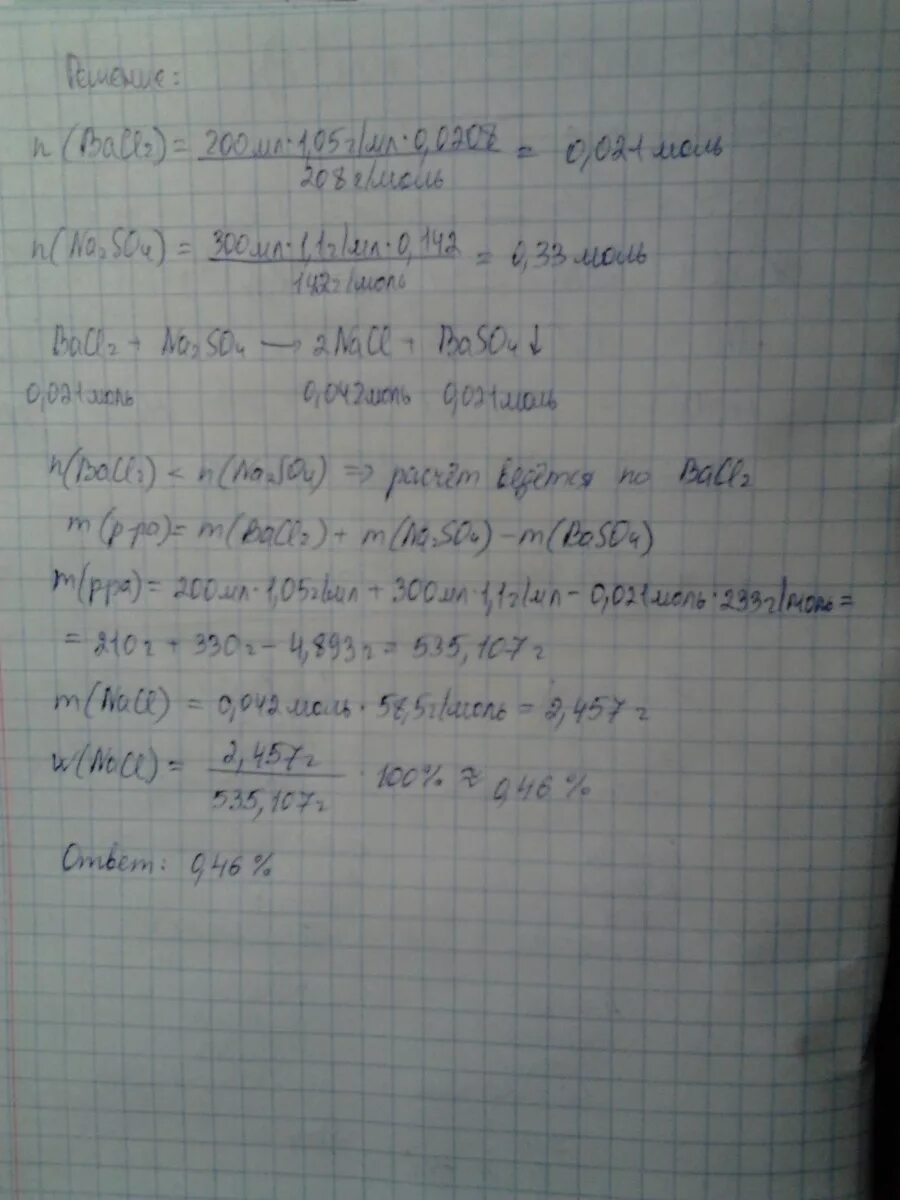 Решение:
n(BaCl₂) = 200мл·1,05г/мл·0,0208 / 208г/моль = 0,021моль
n(Na₂SO₄) = 300мл·1,1г/мл·0,142 / 142г/моль = 0,33моль
BaCl₂ + Na₂SO₄ → 2NaCl + BaSO₄↓
0,021моль 0,042моль 0,021моль
n(BaCl₂) < n(Na₂SO₄) ⇒ расчёт ведётся по BaCl₂
m(р-ра) = m(BaCl₂) + m(Na₂SO₄) - m(BaSO₄)
m(рра) = 200мл·1,05г/мл + 300мл·1,1г/мл - 0,021моль·233г/моль =
= 210г + 330г - 4,893г = 535,107г
m(NaCl) = 0,042моль·58,5г/моль = 2,457г
w(NaCl) = 2,457г / 535,107г · 100% ≈ 0,46%
Ответ: 0,46%